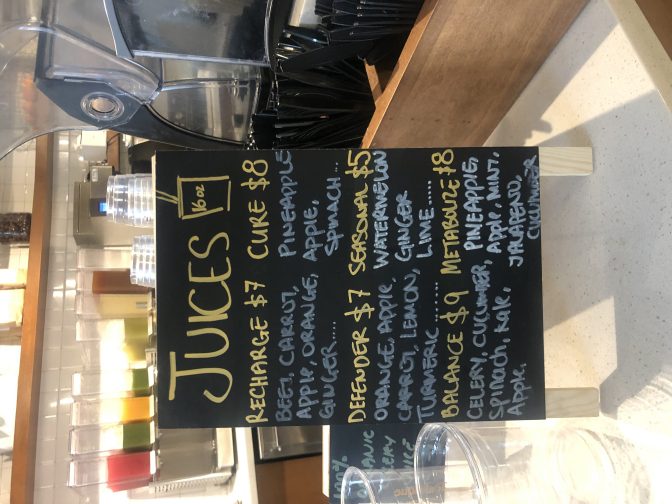 JUICES 16oz
RECHARGE $7
BEET, CAROT,
APPLE, ORANGE,
GINGER....
CURE $8
PINEAPPLE
APPLE,
SPINACH...
DEFENDER $7
ORANGE, APPLE
CARROT, LEMON,
TURMERIC......
SEASONAL $5
WATERMELON
GINGER
LIME.....
BALANCE $9
CELERY, CUCUMBER,
SPINACH, KALE,
APPLE.
METABOLIZE $8
PINEAPPLE,
APPLE, MINT,
JALAPENO,
CUCUMBER